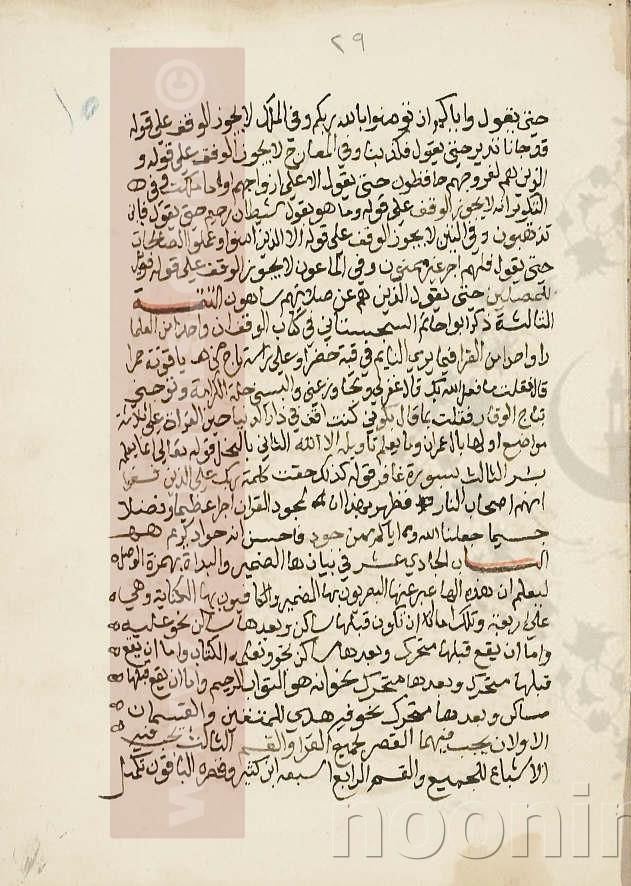 ٢٩
حتى يقول واياكم ان تومنوا بالله ربكم وفي الملك لا يجوز الوقف على قوله
قد جانا نذير حتى يقول فكذبنا وفي المعارج لا يجوز الوقف على قوله و
الذين هم لفروجهم حافظون حتى يقول الا على ازواجهم او ما ملكت وفي
التكوير انه لا يجوز الوقف على قوله وما هو بقول شيطان رجيم حتى يقول فاين
تذهبون وفي التين لا يجوز الوقف على قوله الا الذين امنوا وعملوا الصالحات
حتى يقول فلهم اجر غير ممنون وفي الماعون لا يجوز الوقف على قوله فويل
للمصلين حتى يقول الذين هم عن صلاتهم ساهون
الثالثة ذكر ابو حاتم السجستاني في كتاب الوقف ان واحدا من العلما
راى واحدا من القرا فيما يرى النايم في قبة خضرا وعلى راسه تاج من ياقوتة حمرا
قال فقلت ما فعل الله بك قال غفر لي وتجاوز عني والبسني حلة الكرامة وتوجني
بتاج الوقار فقلت بماذا قال بكوني كنت اقف في دار الدنيا حين القران على ثلاثة
مواضع اولها بال عمران وما يعلم تاويله الا الله الثاني بالنحل قوله تعالى انما يعلمه
بشر الثالث بسورة غافر قوله كذلك حقت كلمة ربك على الذين
انهم اصحاب النار فظهر بهذا ان لمجود القران اجر عظيما وفضلا
جسيما جعلنا الله واياكم ممن جود فاحسن انه جواد كريم
الباب الحادي عشر في بيان ها الضمير والبداة بهمزة الوصل
ليعلم ان هذه الها عبر عنها البصريون بها الضمير والكوفيون بها الكناية وهي
على اربعة وتلك اما ان تكون قبلها ساكن وبعدها ساكن نحو عليه
واما ان يقع قبلها متحرك وبعدها ساكن نحو وتعلمه الكتاب واما ان يقع
قبلها متحرك وبعدها متحرك نحو انه هو التواب الرحيم واما ان يقع قبلها
ساكن وبعدها متحرك نحو فيه هدى للمتقين والقسمان
الاولان يجب فيهما القصر لجميع القرا والقسم الثالث يجب فيه
الاشباع للجميع والقسم الرابع اشبعه ابن كثير وقصره الباقون
noonin